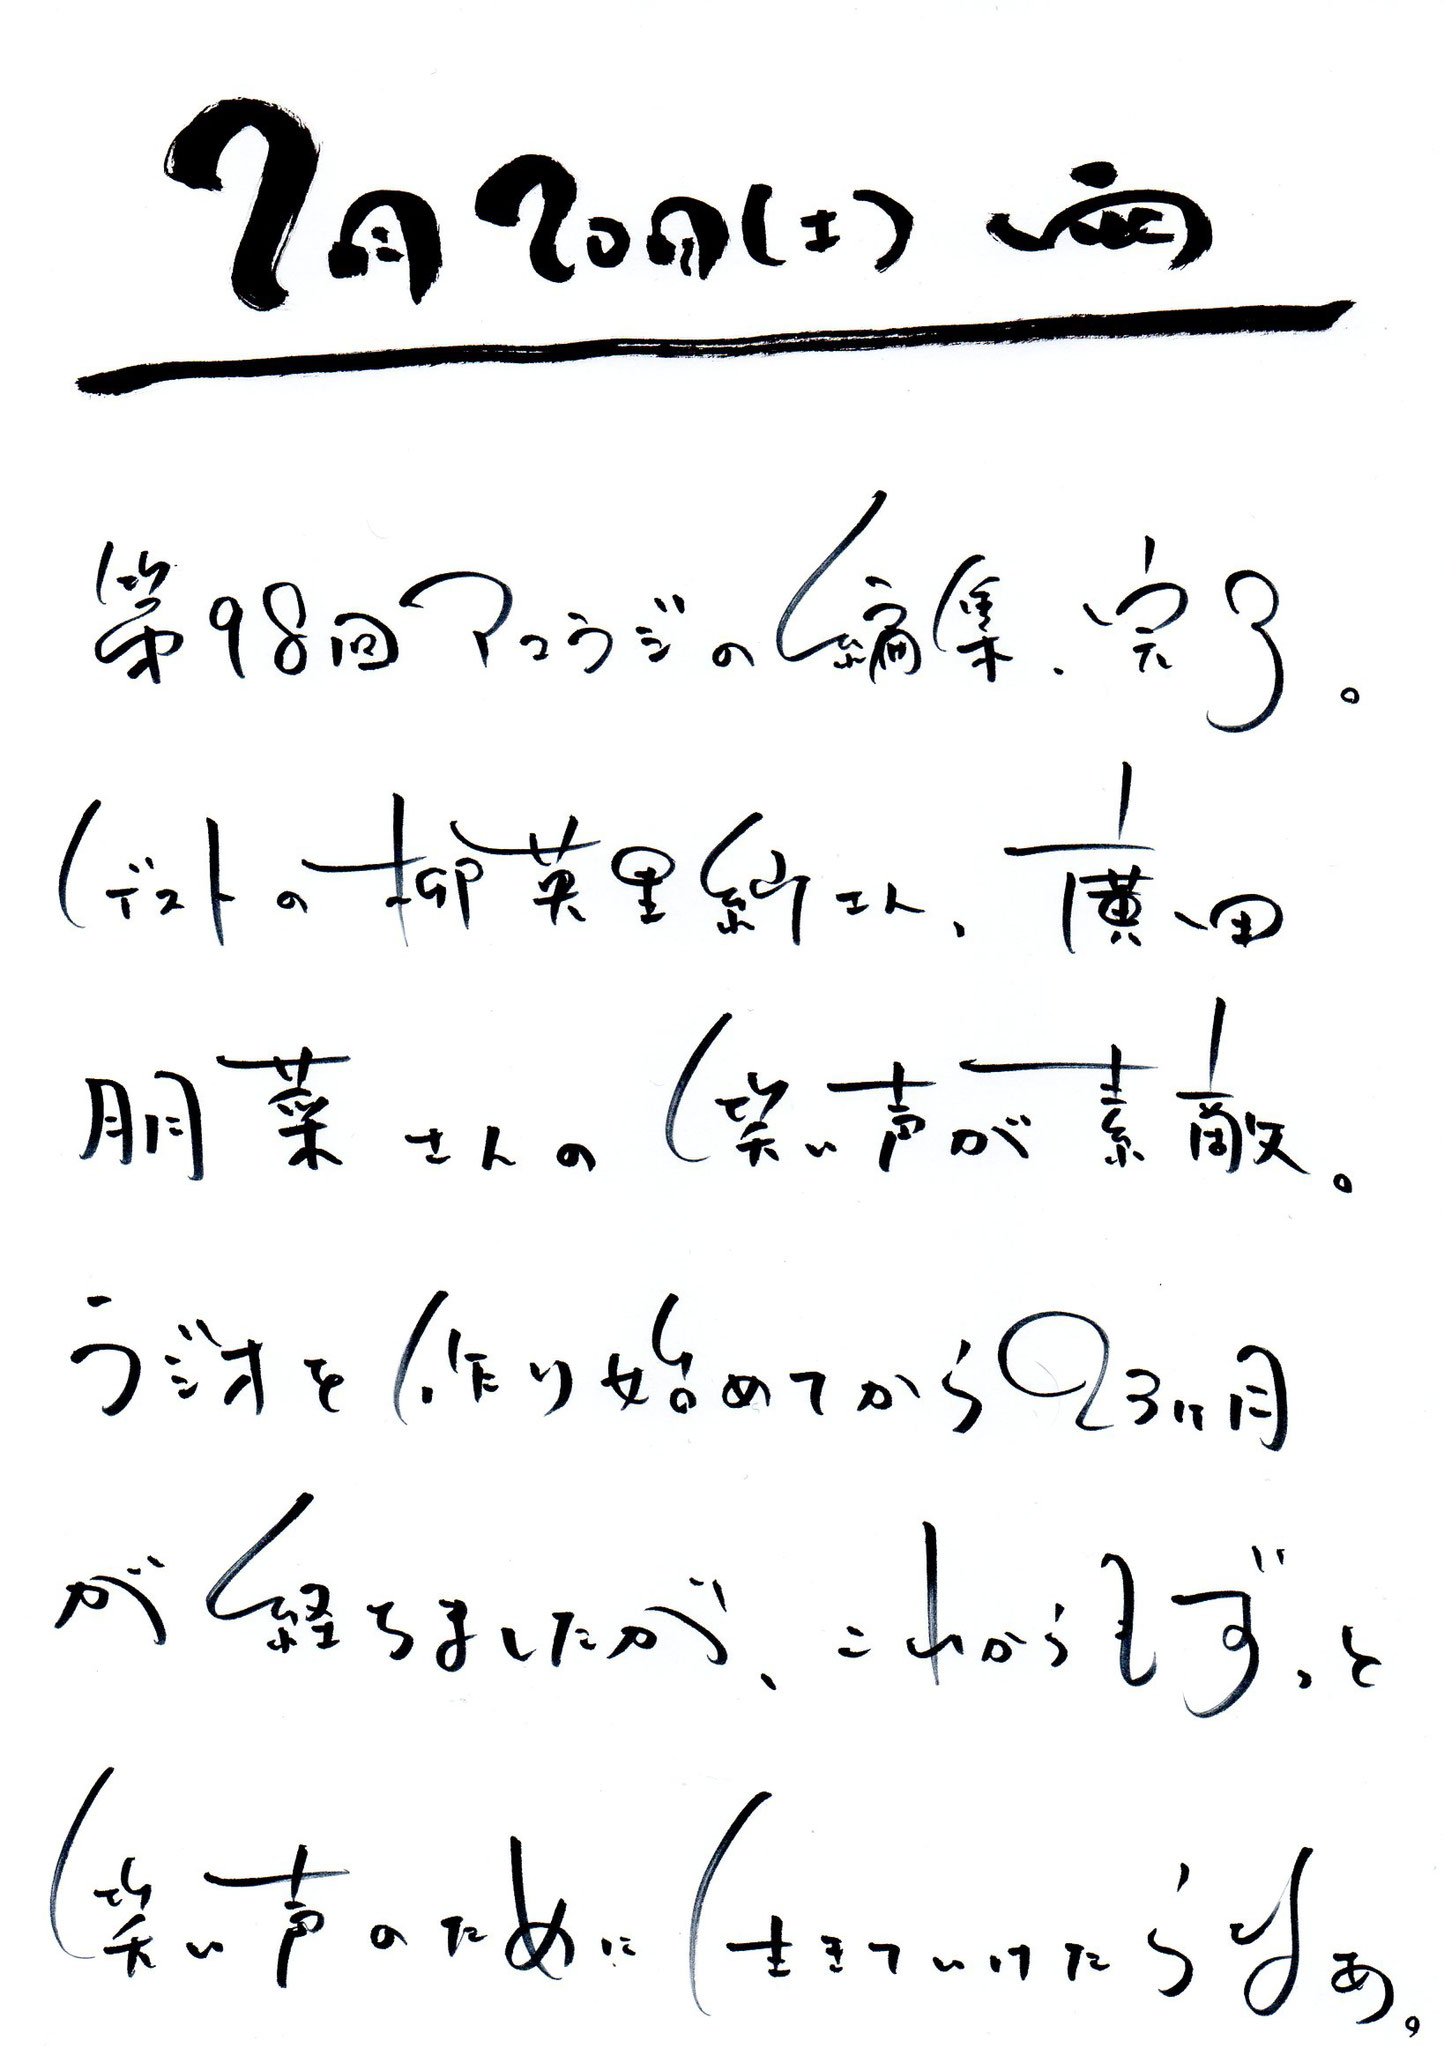 7月20日(土) 雨
第98回アコラジの編集、完了。
ゲストの柳英里紗さん、廣田
朋菜さんの笑い声が素敵。
ラジオを作り始めてから23ヶ月
が経ちましたが、これからもずっと
笑い声のために生きていけたらなあ。